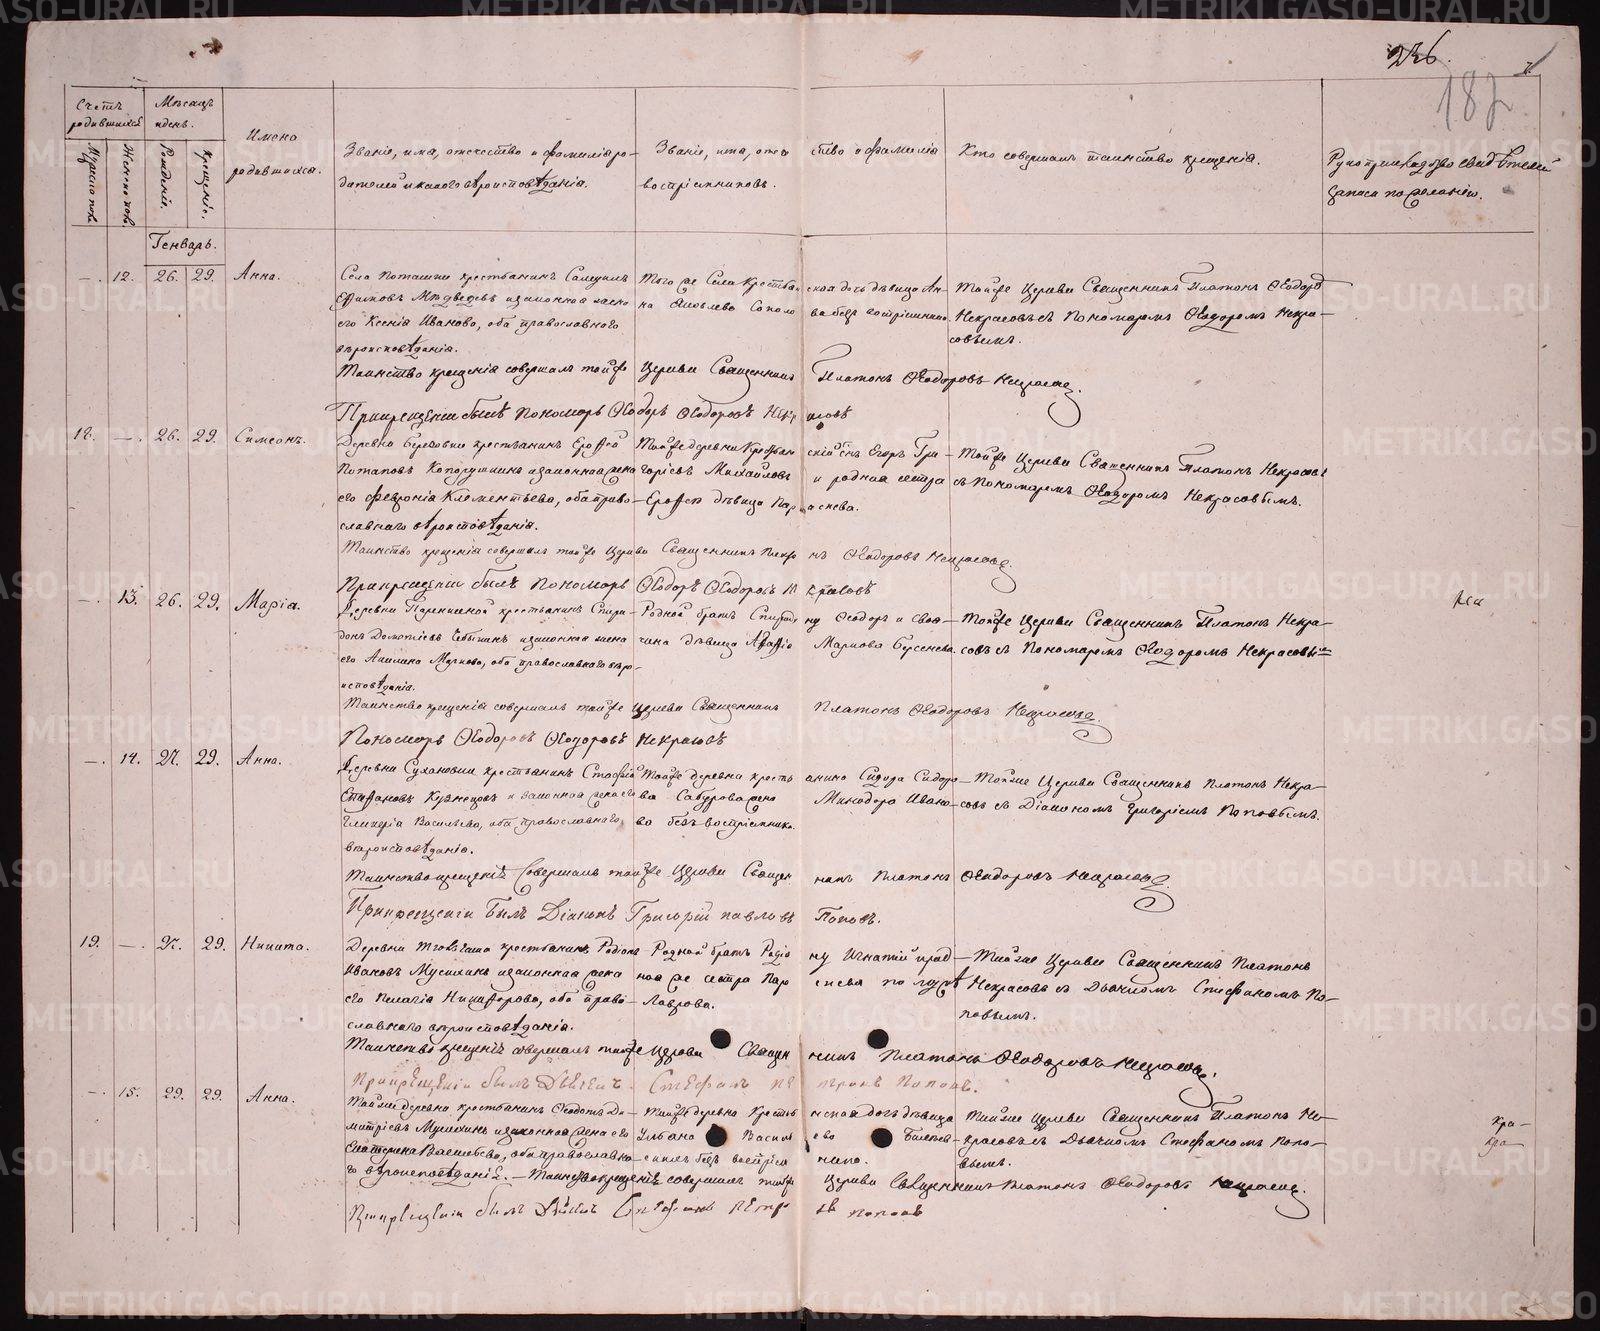 METRIKI.GASO-URAL.RU
236.
187
Счетъ родившихся
Мѣсяцъ и день.
Имена родившихся.
Мужеска пола.
Женска пола.
Рожденіе.
Крещеніе.
Званіе, имя, отечество и фамилія ро-
дителей и какого вѣроисповѣданія.
Званіе, имя, отече ство и фамилія
воспріемниковъ.
Кто совершалъ таинство крещенія.
Рукоприкладство свидѣтелей
записи по желанію.
Генварь.
–. 12. 26. 29. Анна.
Села Поташки крестьянинъ
Медведевъ и законная жена
его Ксенія Иванова, оба православнаго
вѣроисповѣданія.
Того же Села крестьян ская дочь дѣвица Ан-
на Яковлева Соколо ва безъ воспріемника.
Тойже Церкви Священникъ Платонъ Ѳеодоръ
Некрасовъ съ Пономаремъ Ѳеодоромъ Некра-
совымъ.
Таинство крещенія совершалъ тойже Церкви Священникъ Платонъ Ѳеодоровъ Некрасовъ.
При крещеніи былъ Пономарь Ѳеодоръ Ѳеодоровъ Некрасовъ
18. –. 26. 29. Симеонъ.
Деревни крестьянинъ Ероѳей
Потаповъ и законная жена
его Февронія Климентьева, оба право-
славнаго вѣроисповѣданія.
Тойже деревни Крестьян скій сынъ Егоръ Гри-
горьевъ Михайловъ и родная сестра
Ероѳея дѣвица Пар аскева.
Тойже Церкви Священникъ Платонъ Некрасовъ
съ Пономаремъ Ѳеодоромъ Некрасовымъ.
Таинство крещенія совершалъ тойже Церкви Священникъ Платонъ Ѳеодоровъ Некрасовъ.
При крещеніи былъ Пономарь Ѳеодоръ Ѳеодоровъ Некрасовъ
–. 13. 26. 29. Марія.
Деревни крестьянинъ Спири-
донъ и законная жена
его Акилина Маркова, оба православнаго вѣро-
исповѣданія.
Родной братъ Спиридо ну Ѳеодоръ и своя-
чина дѣвица Маркова Берсенева.
Тойже Церкви Священникъ Платонъ Некра-
совъ съ Пономаремъ Ѳеодоромъ Некрасовымъ
Таинство крещенія совершалъ тойже Церкви Священникъ Платонъ Ѳеодоровъ Некрасовъ.
Пономарь Ѳеодоровъ Ѳеодоровъ Некрасовъ
–. 14. 27. 29. Анна.
Деревни Сухановки крестьянинъ
Епифановъ Кузнецовъ и законная жена его
Гликерія Васильева, оба православнаго
вѣроисповѣданія.
Тойже деревни кресть янина Сидора Сидоро-
ва Сабурова жена Минодора Ивано-
ва безъ воспріемника.
Тойже Церкви Священникъ Платонъ Некра-
совъ съ Діакономъ Григоріемъ Поповымъ.
Таинство крещенія совершалъ тойже Церкви Священ никъ Платонъ Ѳеодоровъ Некрасовъ.
При крещеніи былъ Діаконъ Григорій Павловъ Поповъ.
19. –. 27. 29. Никита.
Деревни крестьянинъ Родіонъ
Ивановъ Мусихинъ и законная жена
его Пелагія Никифорова, оба право-
славнаго вѣроисповѣданія.
Родной братъ Родіо ну Игнатій и род-
ная же сестра Пар
Лаврова.
Тойже Церкви Священникъ Платонъ
Некрасовъ съ Дьячкомъ Стефаномъ По-
повымъ.
Таинство крещенія совершалъ тойже Церкви Священ никъ Платонъ Ѳеодоровъ Некрасовъ.
При крещеніи былъ Дьячекъ Стефанъ Петровъ Поповъ.
–. 15. 29. 29. Анна.
Тойже деревни крестьянинъ Ѳедотъ Ди-
митріевъ Мусихинъ и законная жена его
Екатерина Васильева, оба православна-
го вѣроисповѣданія.
Тойже деревни Кресть янская дочь дѣвица
Ульяна Василь ева
безъ воспріем ника.
Тойже Церкви Священникъ Платонъ Не-
красовъ съ Дьячкомъ Стефаномъ Попо-
вымъ.
Таинство крещенія совершалъ тойже Церкви Священникъ Платонъ Ѳеодоровъ Некрасовъ.
При крещеніи былъ Дьячекъ Стефанъ Петровъ Поповъ